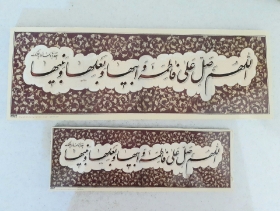 اللهم صل علی فاطمة و ابیها و بعلها و بنیها
اللهم صل علی فاطمة و ابیها و بعلها و بنیها